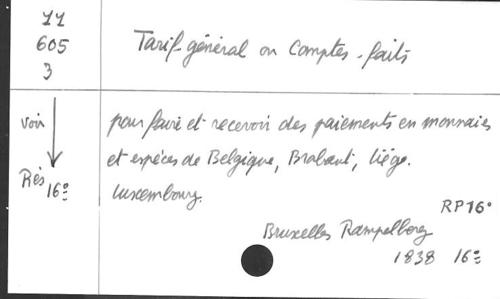 11
605
3
Tarif-général ou Comptes-faits
voir
Rés 16º
pour faire et recevoir des paiements en monnaies
et espèces de Belgique, Brabant, Liége.
Luxembourg.
RP16º
Bruxelles Rampelberg
1838 16º